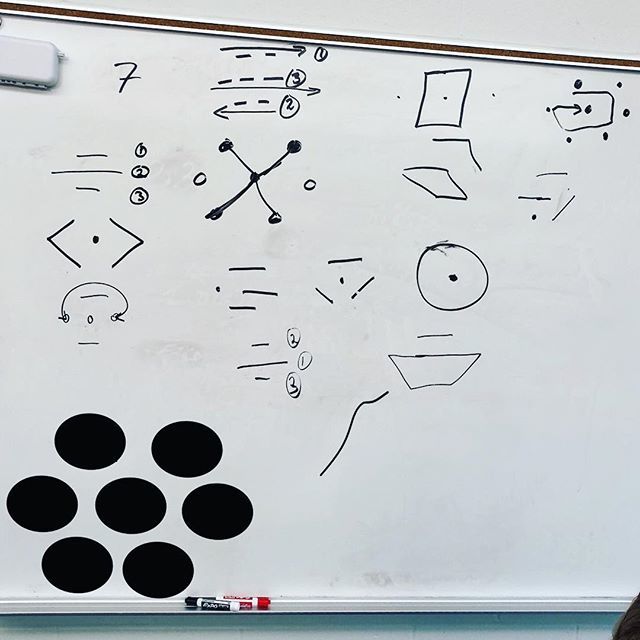 7
1
3
2
1
2
3
2
1
3
EXPO